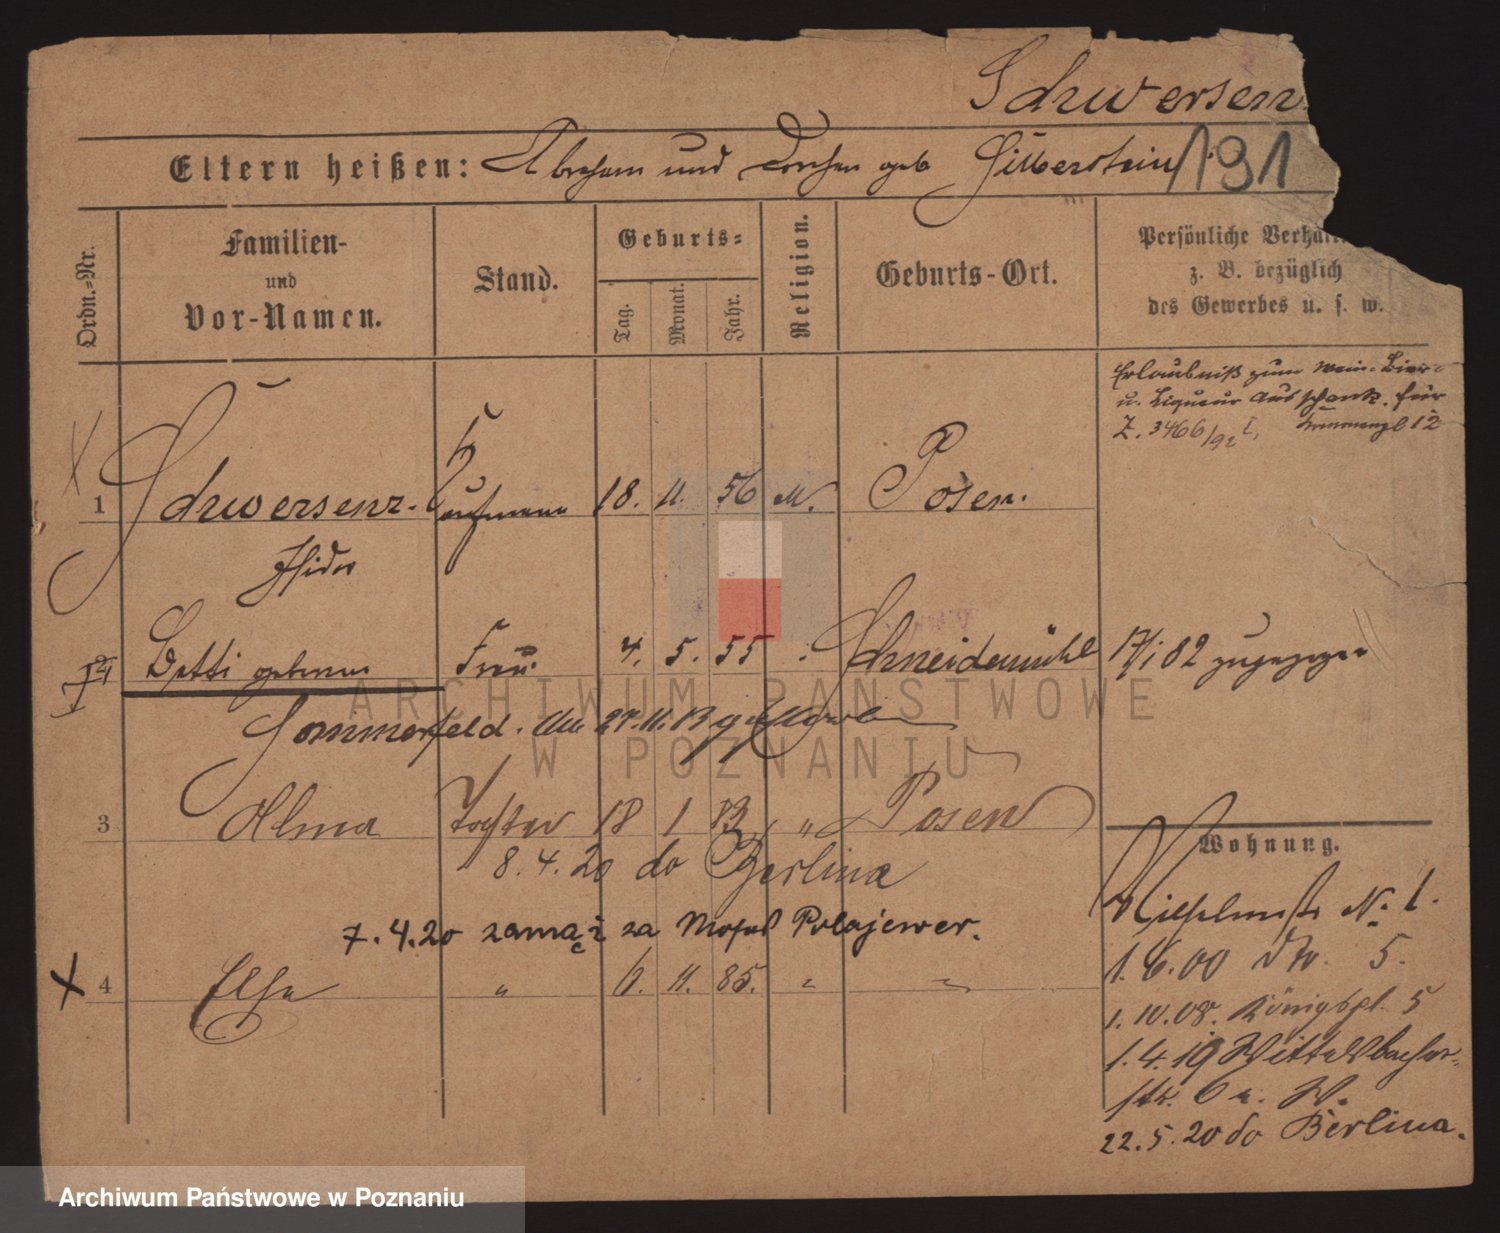 Schwersenz
191
Eltern heißen: Abraham und Dorchen geb Silberstein
Ordn.-Nr.
Familien-
und
Vor-Namen.
Stand.
Geburts-
Tag.
Monat.
Jahr.
Religion.
Geburts-Ort.
Persönliche Verhält
z. B. bezüglich
des Gewerbes u. s. w.
Erlaubniß zum Wein- Bier-
u. Liqueur Ausschank. für
Z. 3466/92 I,
1 Schwersenz. Kaufmann 18. 11. 56 M. Posen.
Isidor
Betti geborene Frau. 4. 5. 55 Schneidemühl 17/1 82 zugezogen
Sommerfeld. Am 27. 11. 13
3 Alma Tochter 18 1 83 " Posen
8. 4. 20 do Berlina
7. 4. 20 zamąż za Polajewer.
4 Else " 6. 11. 85. " "
Wohnung.
Wilhelmstr No 1.
1. 6. 00 5.
1. 10. 08. Königspl. 5
1. 4. 19 Wittelsbacher-
str. 6 W.
22. 5. 20 do Berlina.
ARCHIWUM PAŃSTWOWE
W POZNANIU
Archiwum Państwowe w Poznaniu